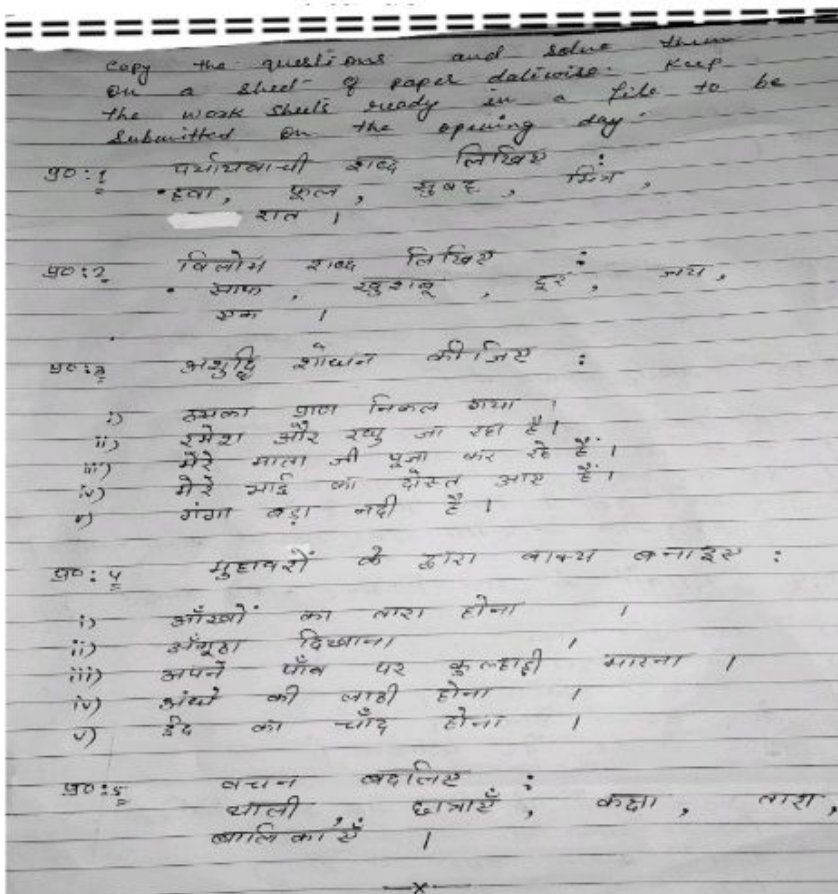 Copy the questions and solve them
on a sheet of paper datewise. Keep
the work sheets ready in a file to be
submitted on the opening day.
प्र०:1 पर्यायवाची शब्द लिखिए :
• हवा, फूल, सुबह, मित्र,
रात ।
प्र०:2 विलोम शब्द लिखिए :
• साफ, खुशबू, दूर, जय,
एक ।
प्र०:3 अशुद्धि शोधन कीजिए :
i) उसका प्राण निकल गया ।
ii) रमेश और रघु जा रहा है ।
iii) मेरे माता जी पूजा कर रहे हैं ।
iv) मेरे भाई का दोस्त आए हैं ।
v) गंगा बड़ा नदी है ।
प्र०:4 मुहावरों के द्वारा वाक्य बनाइए :
i) आँखों का तारा होना ।
ii) अँगूठा दिखाना ।
iii) अपने पाँव पर कुल्हाड़ी मारना ।
iv) अंधे की लाठी होना ।
v) ईद का चाँद होना ।
प्र०:5 वचन बदलिए :
थाली, छात्राएँ, कक्षा, तारा,
बालिकाएँ ।
—x—